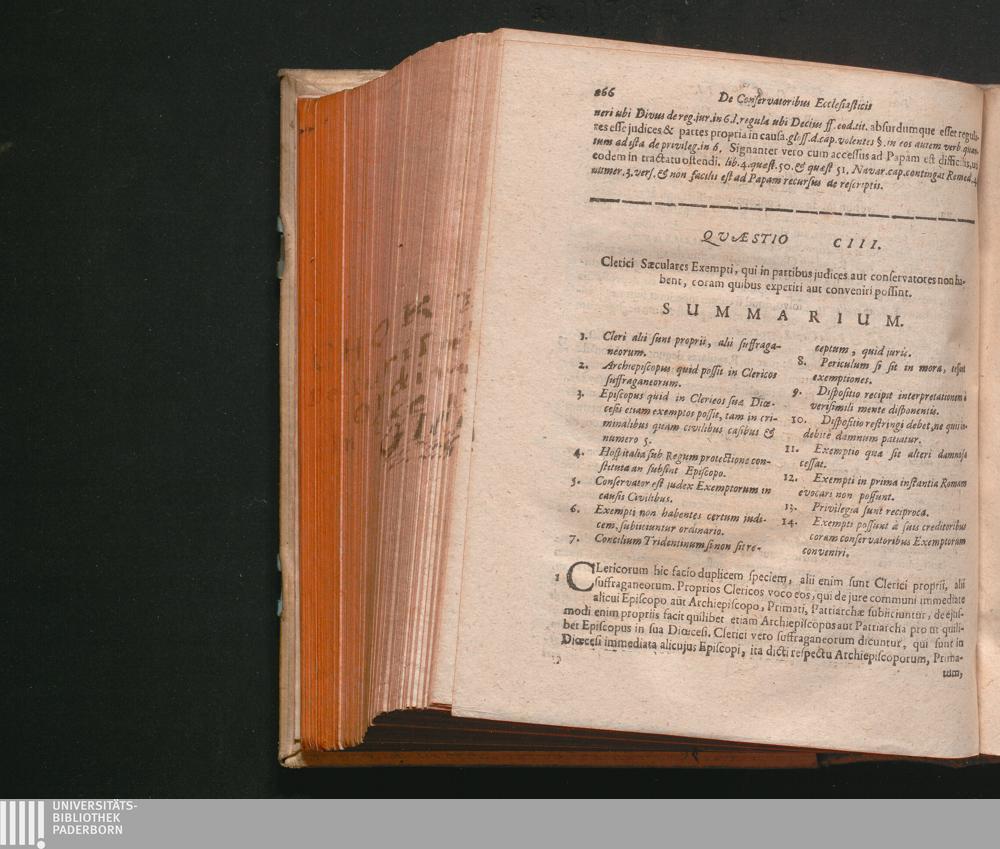 866
De Conservatoribus Ecclesiasticis
neri ubi Divus de reg. jur. in 6. l. regula ubi Decius ff. eod. tit. absurdumque esset
res esse judices & partes propria in causa. gloss. d. cap. volentes §. in eos autem verb.
tum ad ista de privileg. in 6. Signanter vero cum accessus ad Papam est
eodem in tractatu ostendi. lib. 4. quæst. 50. & quæst 51. Navar. cap. contingat Remed. 4
numer. 3. vers. & non facilis est ad Papam recursus de rescriptis.
QVÆSTIO CIII.
Clerici Sæculares Exempti, qui in partibus judices aut conservatores non ha-
bent, coram quibus experiri aut conveniri possint.
SUMMARIUM.
1. Cleri alii sunt proprii, alii suffraga-
neorum.
2. Archiepiscopus quid possit in Clericos
suffraganeorum.
3. Episcopus quid in Clericos suæ Diœ-
cesis etiam exemptos possit, tam in cri-
minalibus quam civilibus casibus &
numero 5.
4. Hospitalia sub Regum protectione con-
stituta an subsint Episcopo.
5. Conservator est judex Exemptorum in
causis Civilibus.
6. Exempti non habentes certum judi-
cem, subiiciuntur ordinario.
7. Concilium Tridentinum si non sit re-
ceptum, quid juris.
8. Periculum si sit in mora,
exemptiones.
9. Dispositio recipit interpretationem à
verisimili mente disponentis.
10. Dispositio restringi debet, ne quis in-
debite damnum patiatur.
11. Exemptio quæ sit alteri damnosa
cessat.
12. Exempti in prima instantia Romam
evocari non possunt.
13. Privilegia sunt reciproca.
14. Exempti possunt à suis creditoribus
coram conservatoribus Exemptorum
conveniri.
1 CLericorum hic facio duplicem speciem, alii enim sunt Clerici proprii, alii
suffraganeorum. Proprios Clericos voco eos, qui de jure communi immediate
alicui Episcopo aut Archiepiscopo, Primati, Patriarchæ subiiciuntur, de ejus-
modi enim propriis facit quilibet etiam Archiepiscopus aut Patriarcha pro ut quili-
bet Episcopus in sua Diœcesi. Clerici vero suffraganeorum dicuntur, qui sunt in
Diœcesi immediata alicujus Episcopi, ita dicti respectu Archiepiscoporum, Prima-
tum,
UNIVERSITÄTS-
BIBLIOTHEK
PADERBORN